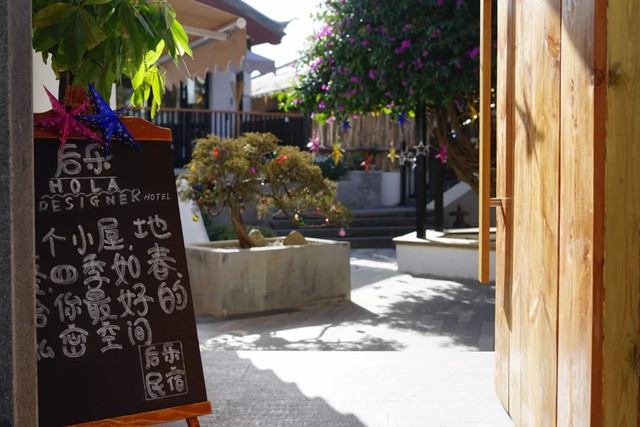 后乐
HOLA
DESIGNER HOTEL
个小屋,地
四季如春,
你最好的
密空间
后乐
民宿